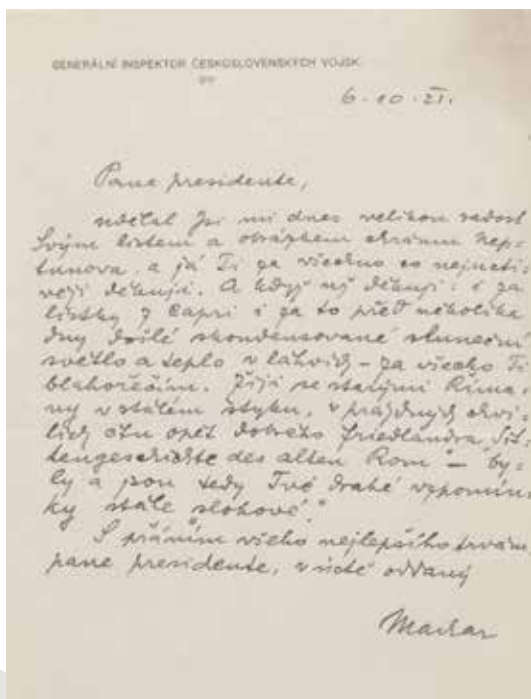 GENERÁLNÍ INSPEKTOR ČESKOSLOVENSKÝCH VOJSK.
6.10.21.
Pane presidente,
udělal jsi mi dnes velikou radost
Svým listem a obrázkem chrámu Nep=
tunova, a já Ti za všechno co nejuctí=
věji děkuji. A když už děkuji: i za
lístky z Capri i za to před několika
dny došlé skondensované sluneční
světlo a teplo v láhvích – za všecko Ti
blahořečím. Žiji se starými Říma=
ny v stálém styku, v prázdných chví=
lích čtu opět dobrého Friedlandra „Sit=
tengeschichte des alten Rom" – by=
ly a jsou tedy Tvé drahé vzpomín=
ky stále slohové."
S přáním všeho nejlepšího trvám,
pane presidente, v úctě oddaný
Machar